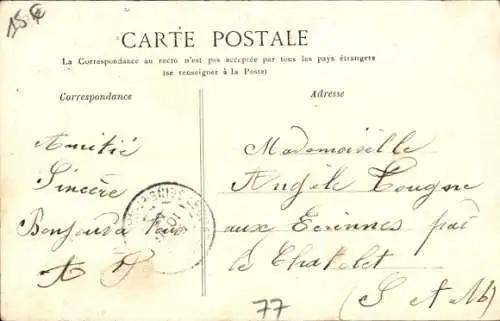 15€
CARTE POSTALE
La Correspondance au recto n'est pas acceptée par tous les pays étrangers
(se renseigner à la Poste)
Correspondance
Adresse
Amitié
Sincère
Bonjour à tous
Mademoiselle
Angèle Cougne
aux Ecrennes par
le Chatelet
(S et M)
77